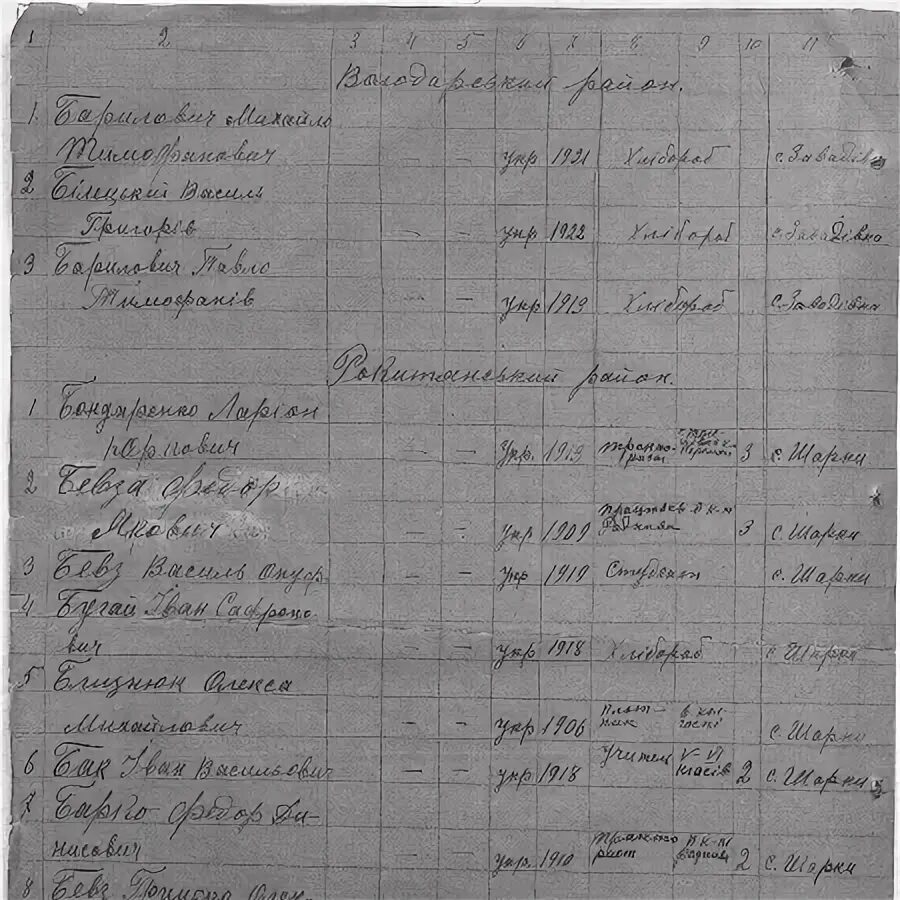 1 2 3 4 5 6 7 8 9 10 11
Володарський район.
1 Барилович Михайло
Тимофанович — — укр 1921 Хлібороб с. Завадівка
2 Білецький Василь
Григорів — — укр 1922 Хлібороб с. Завадівка
3 Барилович Павло
Тимофанів — — укр 1919 Хлібороб с. Завадівка
Рокитянський район.
1 Бондаренко Ларіон
Юрпович — — Укр. 1919 3 с. Шарки
2 Бевза Федор
Якович — — укр 1909 3 с. Шарки
3 Бевз Василь Онуф — — укр 1919 Студент с. Шарки
4 Бугай Іван Сафроно
вич укр 1918 Хлібороб с. Шарки
5 Близнюк Олекса
Михайлович — — укр 1906 с. Шарки
6 Бак Іван Васильович — — укр 1918 Учитель V-VI класів 2 с. Шарки
7 Барко Федор Ди-
нисович — — укр. 1910 2 с. Шарки
8 Бевз